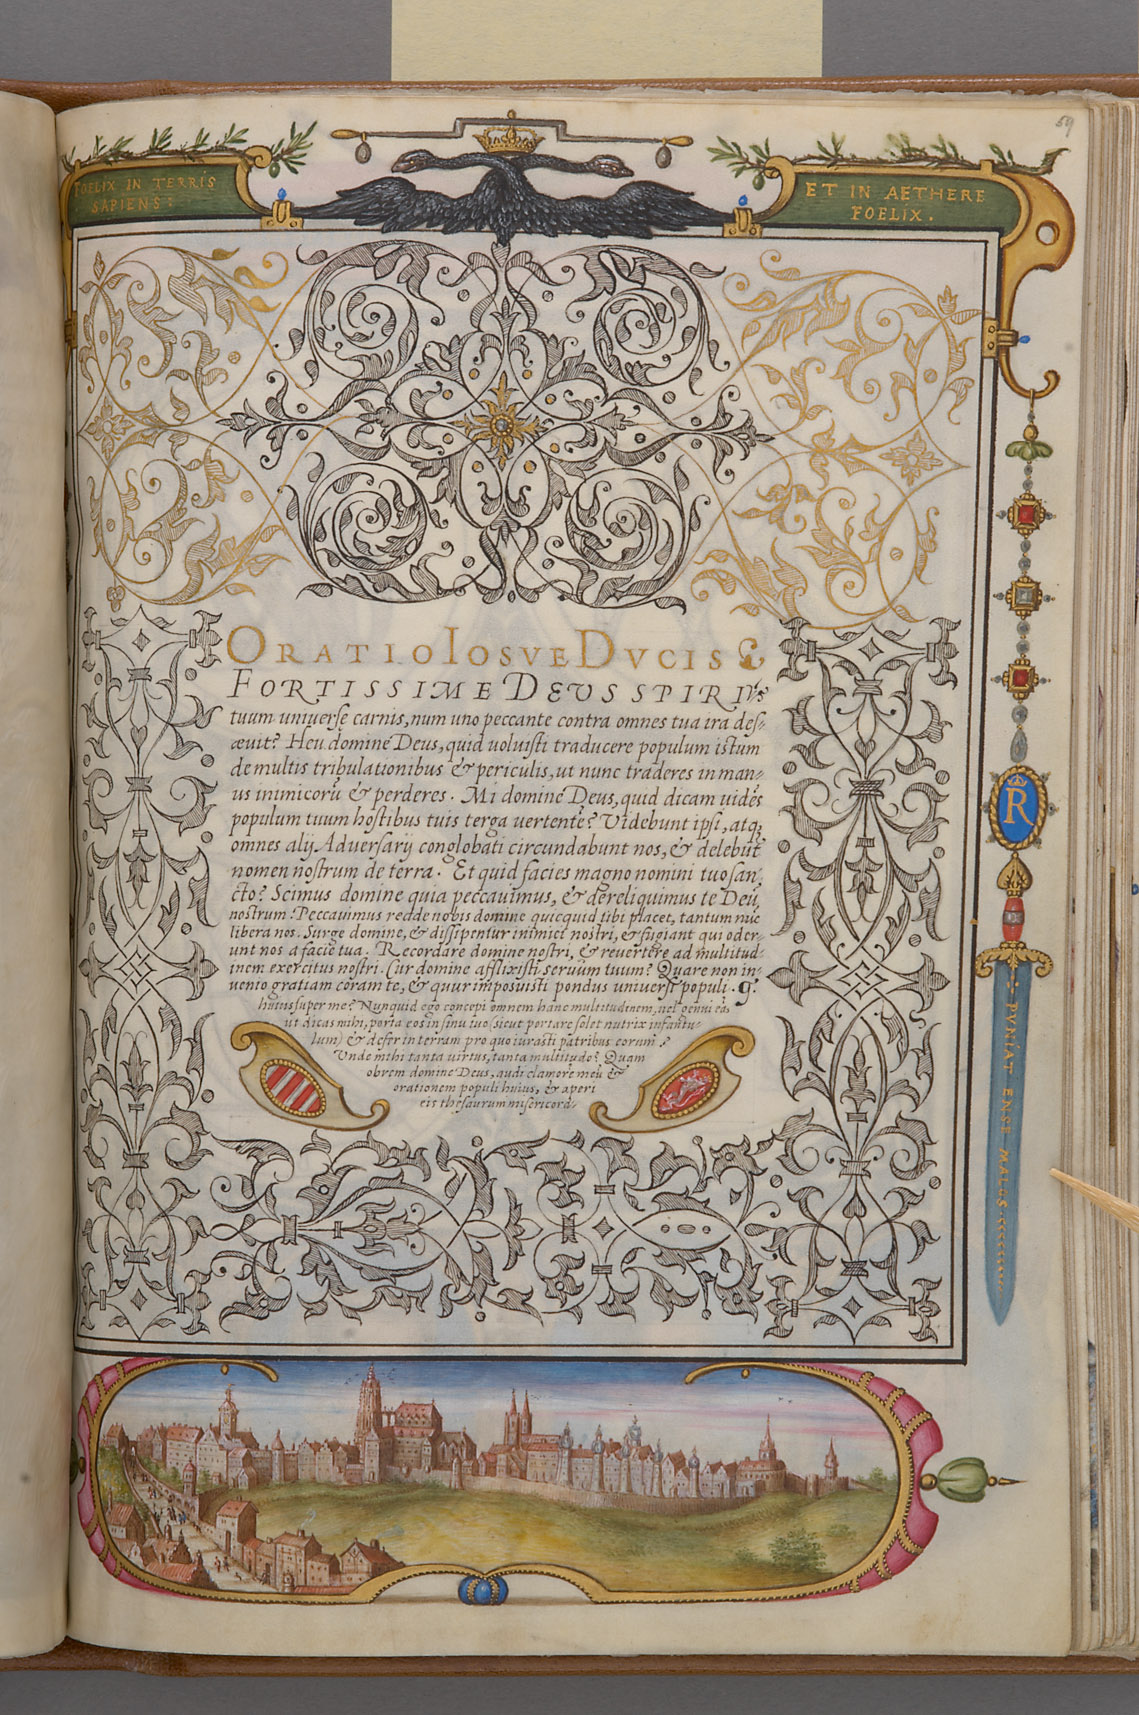 59
FOELIX IN TERRIS
SAPIENS:
ET IN AETHERE
FOELIX.
ORATIO IOSVE DVCIS
FORTISSIME DEVS SPIRI
tuum universe carnis, num uno peccante contra omnes tua ira des-
æuit? Heu domine Deus, quid uoluisti traducere populum istum
de multis tribulationibus & periculis, ut nunc traderes in man-
us inimicorũ & perderes. Mi domine Deus, quid dicam uidẽs
populum tuum hostibus tuis terga uertente? Videbunt ipsi, atq;
omnes alij Adversarij conglobati circundabunt nos, & delebũt
nomen nostrum de terra. Et quid facies magno nomini tuo san-
cto? Scimus domine quia peccauimus, & dereliquimus te Deũ
nostrum. Peccauimus redde nobis domine quicquid tibi placet, tantum nũc
libera nos. Surge domine, & dissipentur inimici nostri, & fugiant qui oder-
unt nos a facie tua. Recordare domine nostri, & reuertere ad multitud-
inem exercitus nostri. Cur domine afflixisti seruum tuum? Quare non in-
uenio gratiam coram te, & quur imposuisti pondus universi populi
huius super me? Nunquid ego concepi omnem hanc multitudinem, uel genui eã
ut dicas mihi, porta eos in sinu tuo (sicut portare solet nutrix infantu-
lum) & defer in terram pro quo iurasti patribus eorum?
Unde mihi tanta uirtus, tanta multitudo? Quam
obrem domine Deus, audi clamorẽ meũ &
orationem populi huius, & aperi
eis thesaurum misericord-
R
PVNIAT ENSE MALOS